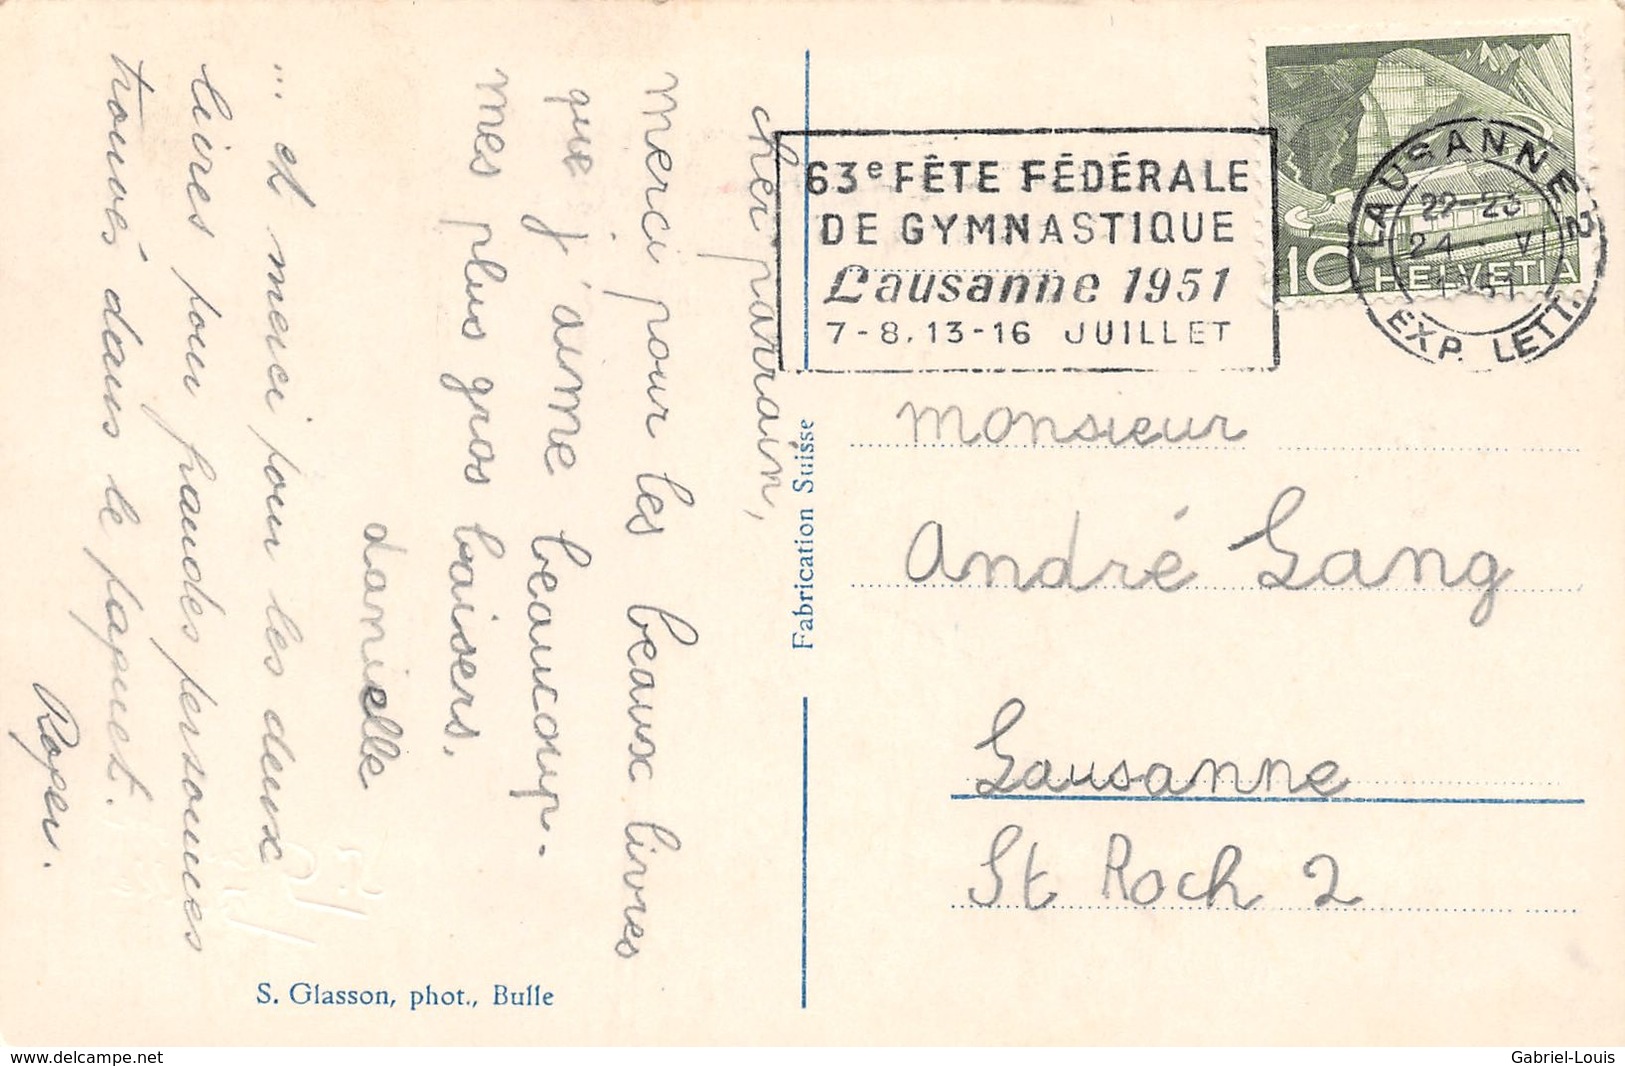 cher parrain,
merci pour les beaux livres
que j'aime beaucoup.
mes plus gros baisers.
danielle
... et merci pour les deux
livres pour grandes personnes
trouvés dans le paquet.
Roger.
63e FÊTE FÉDÉRALE
DE GYMNASTIQUE
Lausanne 1951
7-8, 13-16 JUILLET
10 HELVETIA
LAUSANNE 2
22-23
24 - VI
EXP. LETT.
Fabrication Suisse
monsieur
andré Gang
Lausanne
St Roch 2
S. Glasson, phot., Bulle
www.delcampe.net
Gabriel-Louis